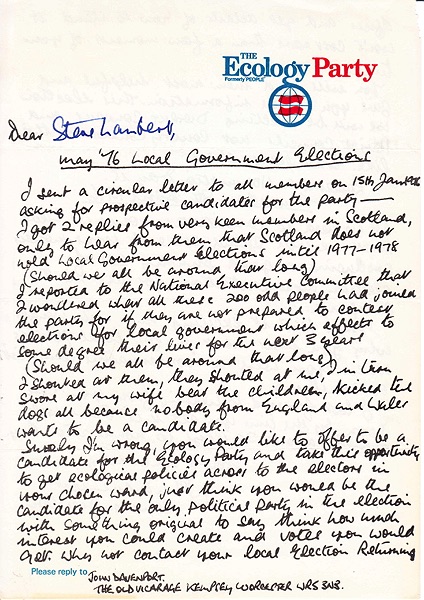 THE
Ecology Party
Formerly PEOPLE
Dear Steve Lambert,
May '76 Local Government Elections
I sent a circular letter to all members on 15th Jan 1976
asking for prospective candidates for the party —
I got 2 replies from very keen members in Scotland,
only to hear from them that Scotland does not
hold Local Government Elections until 1977-1978
(Should we all be around that long)
I reported to the National Executive Committee that
I wondered what all these 200 odd people had joined
the party for if they are not prepared to contest
elections for local government which affects to
some degree their lives for the next 3 years
(Should we all be around that long)
I shouted at them, they shouted at me, I in turn
swore at my wife beat the children, kicked the
dog! all because nobody from England and Wales
wants to be a candidate.
Surely I'm wrong, you would like to offer to be a
candidate for the Ecology Party and take this opportunity
to get ecological policies across to the electors in
your chosen ward, just think you would be the
candidate for the only political Party in the election
with something original to say think how much
interest you could create and votes you would
get. Why not contact your local Election Returning
Please reply to JOHN DAVENPORT.
THE OLD VICARAGE KEMPSEY WORCESTER WR5 3NS.